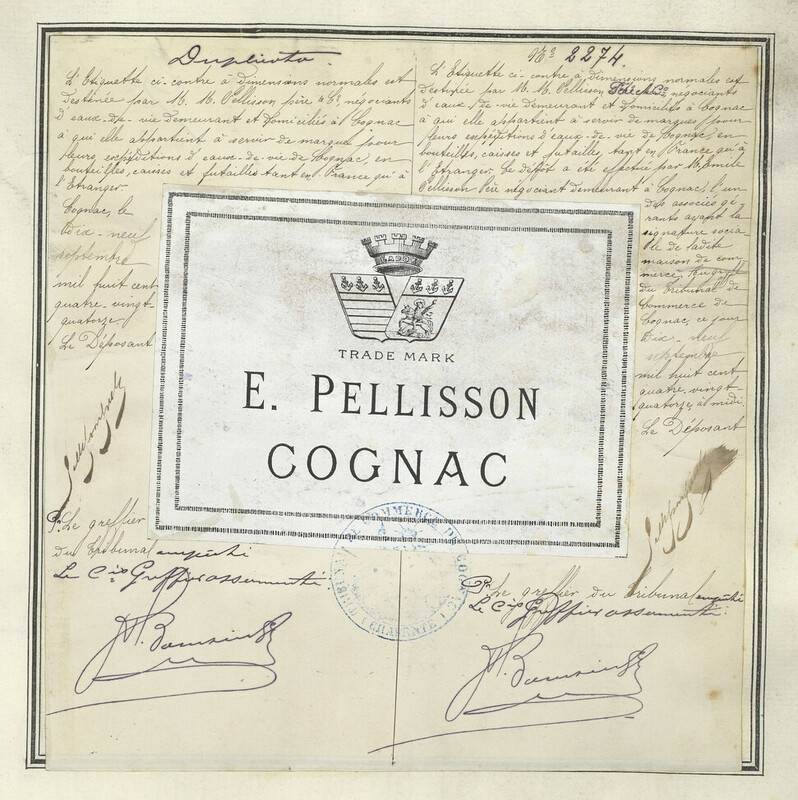 Duplicata
L'Etiquette ci-contre à dimensions normales est
destinée par M. M. Pellisson père & Cie négociants
d'eaux-de-vie demeurant et domiciliés à Cognac
à qui elle appartient à servir de marque pour
leurs expéditions d'eaux-de-vie de Cognac, en
bouteilles, caisses et futailles tant en France qu'à
l'Etranger.
Cognac, le
dix-neuf
septembre
mil huit cent
quatre-vingt-
quatorze
Le Déposant
P. Le greffier
du Tribunal empêché
Le Cis Greffier assermenté
No 2274.
L'Etiquette ci-contre à dimensions normales est
destinée par M. M. Pellisson Père & Cie négociants
d'eaux-de-vie demeurant et domiciliés à Cognac
à qui elle appartient à servir de marques pour
leurs expéditions d'eaux-de-vie de Cognac, en
bouteilles, caisses et futailles, tant en France qu'à
l'Etranger. Le dépôt a été effectué par M. Emile
Pellisson Père négociant demeurant à Cognac, l'un
des associés gé-
rants ayant la
signature socia-
le de ladite
maison de com-
merce, au greffe
du Tribunal de
Commerce de
Cognac, ce jour
dix-neuf
septembre
mil huit cent
quatre-vingt
quatorze, à midi.
Le Déposant
Pr Le greffier du Tribunal empêché
Le Cis Greffier assermenté
TRADE MARK
E. PELLISSON
COGNAC
TRIBUNAL DE COMMERCE DE COGNAC
(CHARENTE)